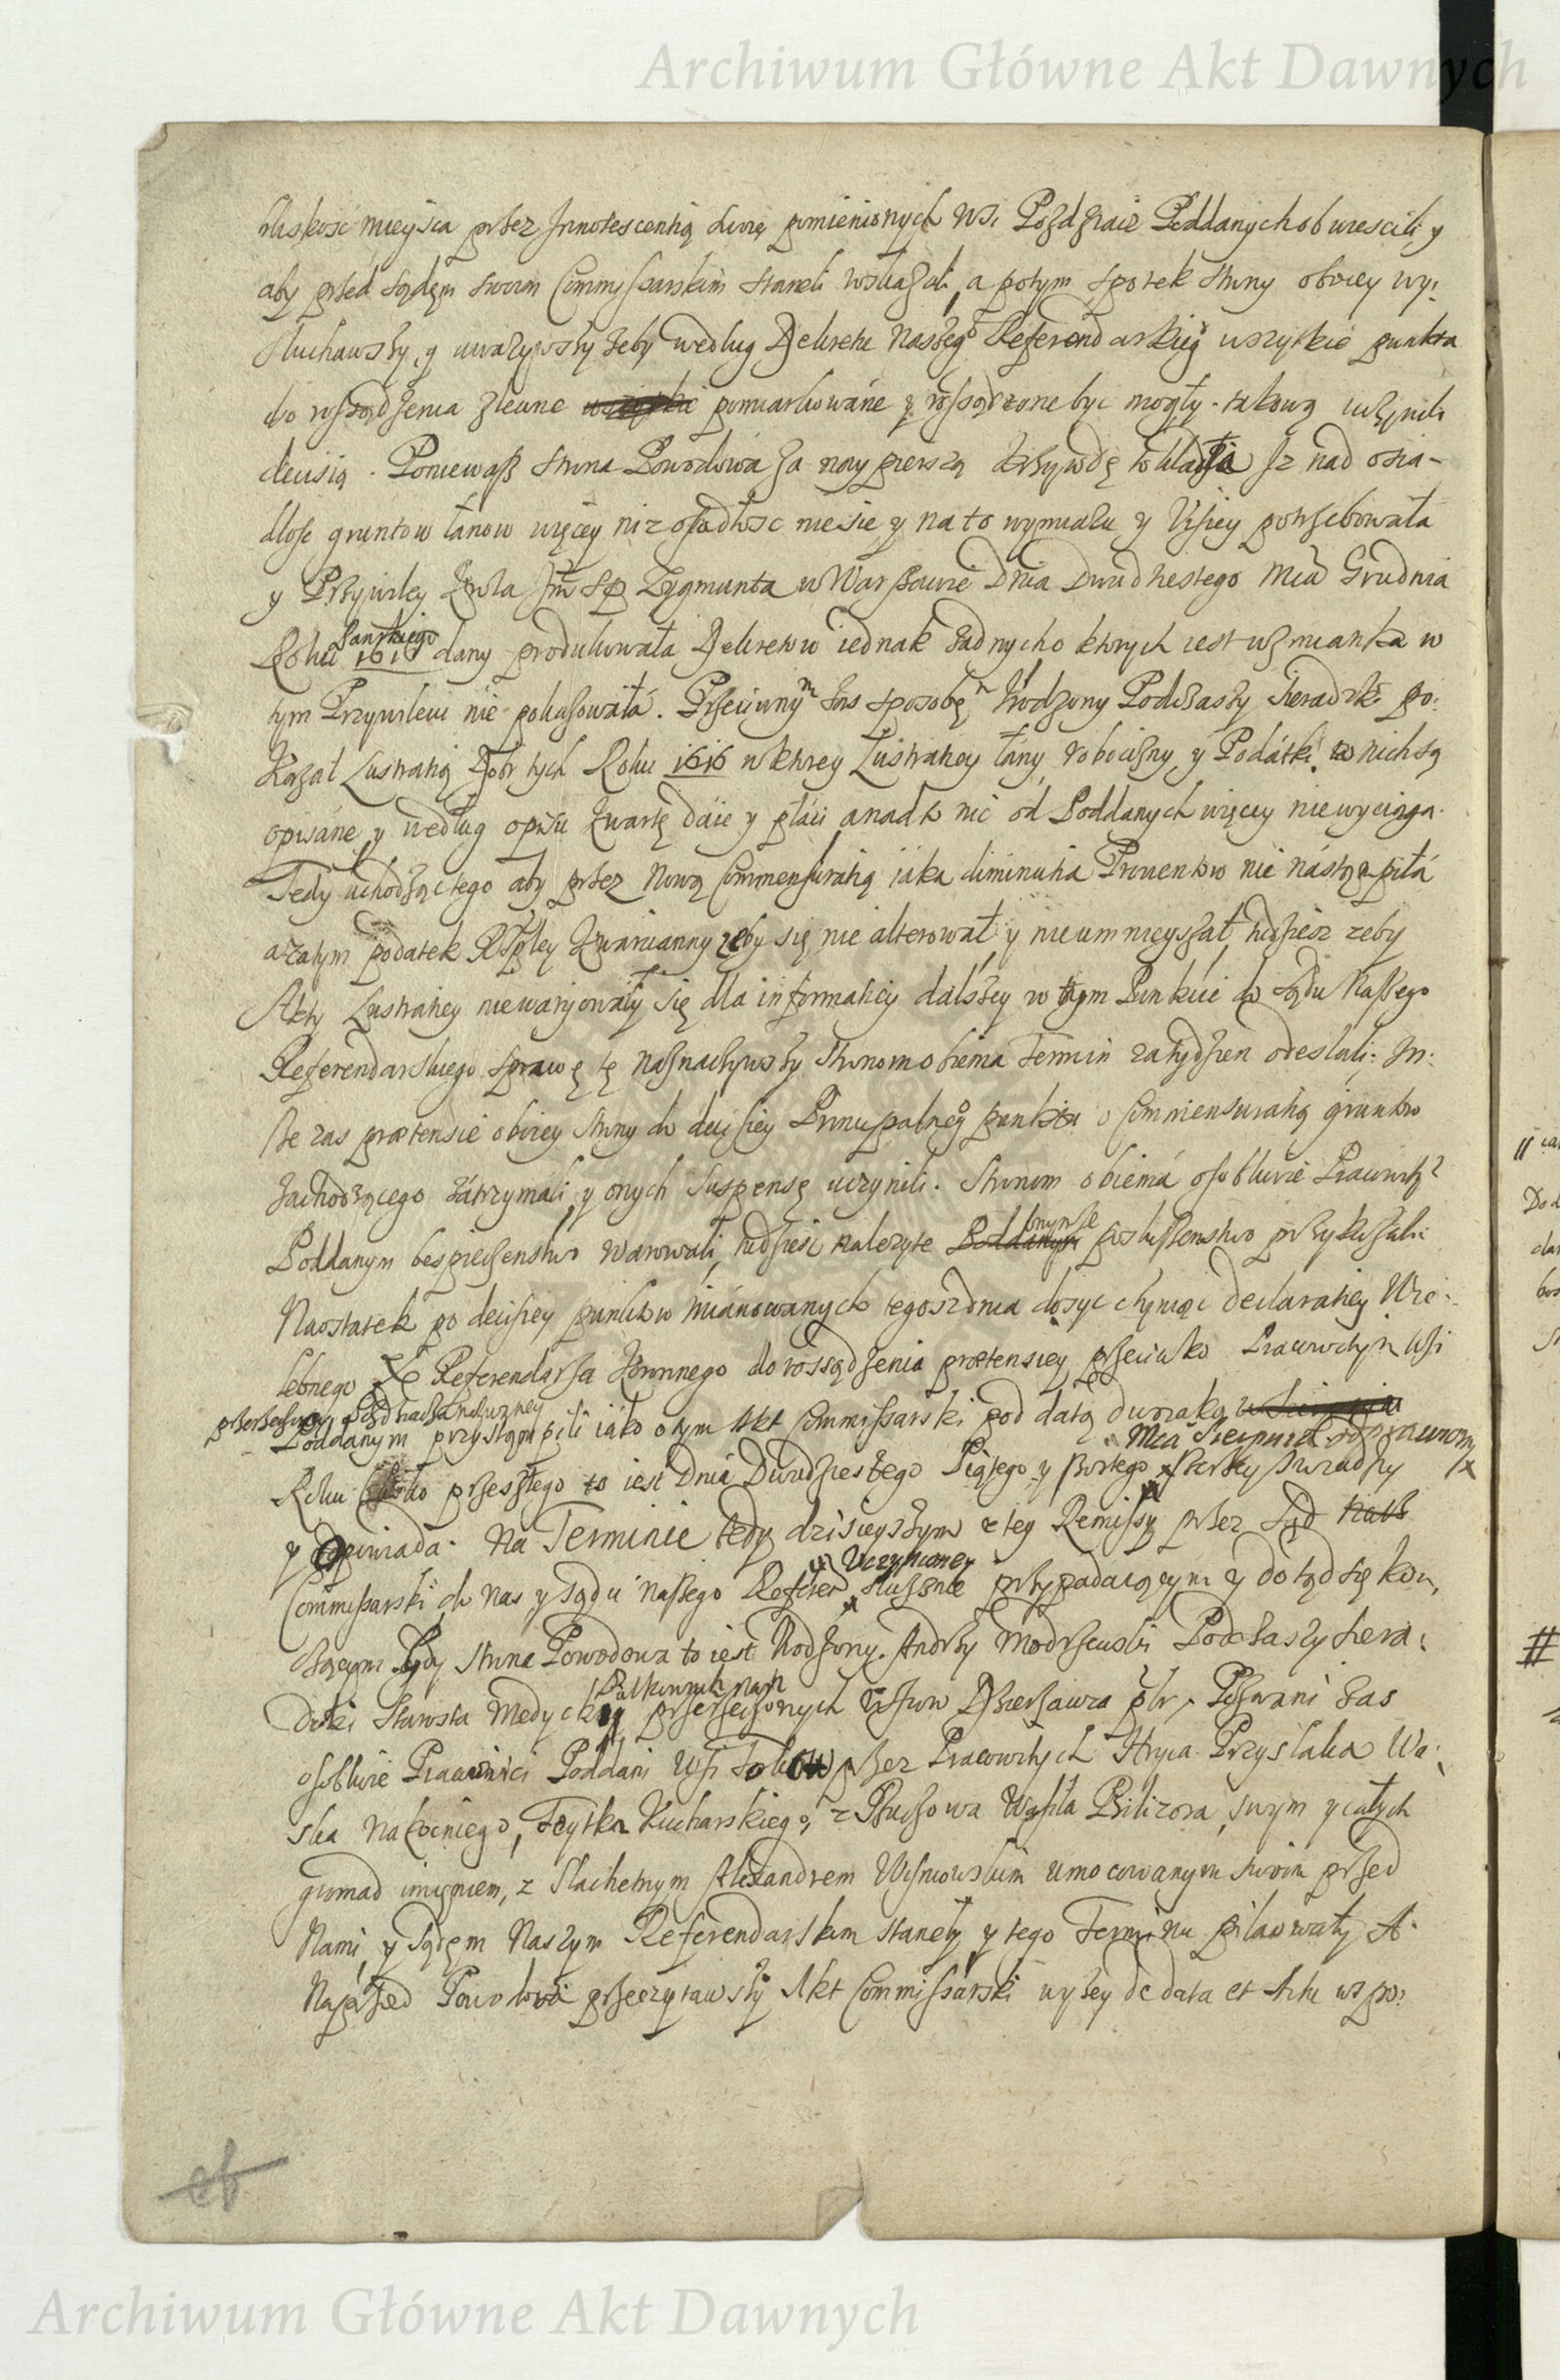 Archiwum Główne Akt Dawnych
bliskosc mieysca przez Innotescentią dwię pomienionych Wsi Pozdziacz Poddanych obwiescili y
aby przed Sądem swoim Commissarskim staneli wskazali, a potym spotek strony oboiey wy:
słuchawszy, y uwazywszy zeby według Dekretu Naszego Referendarskiego wszytkie punkta
do rossądzenia zlecone pomiarkowáne y rossądzone byc mogły. takową uczynili
decisią. Poniewasz strona Powodowa za naypierszą krzywdę pokładła Iz nad osia-
dłosc gruntow łanow więcey niz osiadłosc niesie y na to wymiaru y Visiey potrzebowała
y Przywiley Krola Jm Sp Zygmunta w Warszawie Dnia Dwudziestego Mca Grudnia
Pańskiego
Roku 1616 dany produkowała Dekretow iednak zadnych o ktorych iest wzmianka w
tym Przywileiu nie pokazowałá. Przeciwnym zas sposobem Urodzony Podczaszy Sieradzki po:
kazał Lustratią Dobr tych Roku 1616 w ktorey Lustratiey łany robocizny y Podátki w nich są
opisáne, y według opisu kwartę daie y płáci a nad to nic od Poddanych więcey niewyciąga.
Tedy uchodząc tego aby przez Nową Commensuratią iáka diminutia Prouentow nie nástąpiłá
a zatym podatek Rzpltey Kwarcianny zeby się nie alterował, y nieumnieyszał, tudziesz zeby
Akty Lustratiey niewaryowały się dla informatiey dalszey w tym Punkcie do Sądu Naszego
Referendarskiego sprawę tę naznaczywszy stronom obiema Termin zatydzien odesłali; In:
sze zas prætensie oboiey strony do decisiey Principalnego punktu o Commensuratią gruntow
zachodzącego zátrzymali, y onych suspensę uczynili. Stronom obiemá osobliwie Pracowitym
Poddanym bespieczenstwo warowali, tudziesz nalezyte Poddanym posłuszenstwo przykazali
Naostatek po decisiey punktow miánowanych tegosz dnia dosyc czyniąc declaratiey Wie:
lebnego Xe Referendarza Koronnego do rossądzenia prætensiey przeciwko Pracowitym Wsi
Poddanym przystąpili iáko o tym Akt Commissarski pod datą dwoiaką
Mca Sierpnia odprawiony
Roku blisko przeszłego to iest Dnia Dwudziestego Piątego y Szostego szerzey swiadczy
y opowiada. Na Terminie tedy dzisieyszym z tey Remissy przez Sąd
Uczynioney
Commissarski do nas y Sądu Naszego Referen słusznie przypadaiącym y dotąd się kon,
czącym Gdy strona Powodowa to iest Urodzony Andrzy Modrzewski Podczaszy Siera:
dzki Starosta Medycki przerzeczonych Dzierzawca Pozwani zas
osobliwie Pracowici Poddani Wsi przez Pracowitych Hryca Przyslaka Wa:
ska Nakoniego, Fedka Kucharskiego, z Waska Bilizora, swym y całych
gromad imieniem, z Slachetnym Alexandrem Wisniowskim umocowanym swoim przed
Nami, y Sądem Naszym Referendarskim stanęły y tego Terminu pilnowały A.
Naprzod Powodowa przeczytawszy Akt Commissarski wyzey de data et Actu wspo:
Archiwum Główne Akt Dawnych